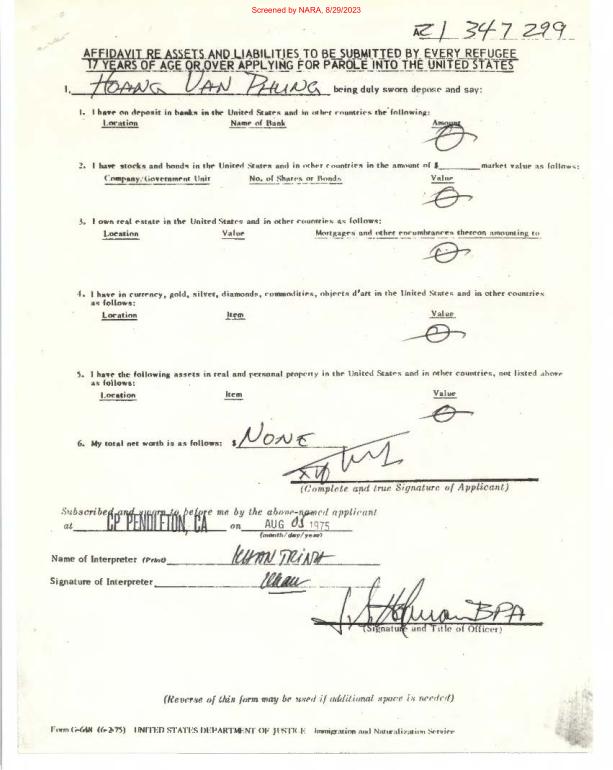 Screened by NARA, 8/29/2023
AZ1 347 299
AFFIDAVIT RE ASSETS AND LIABILITIES TO BE SUBMITTED BY EVERY REFUGEE
17 YEARS OF AGE OR OVER APPLYING FOR PAROLE INTO THE UNITED STATES
I, HOANG VAN PHUNG being duly sworn depose and say:
1. I have on deposit in banks in the United States and in other countries the following:
Location Name of Bank Amount
2. I have stocks and bonds in the United States and in other countries in the amount of $ market value as follows:
Company/Government Unit No. of Shares or Bonds Value
3. I own real estate in the United States and in other countries as follows:
Location Value Mortgages and other encumbrances thereon amounting to
4. I have in currency, gold, silver, diamonds, commodities, objects d'art in the United States and in other countries
as follows:
Location Item Value
5. I have the following assets in real and personal property in the United States and in other countries, not listed above
as follows:
Location Item Value
6. My total net worth is as follows: $ NONE
(Complete and true Signature of Applicant)
Subscribed and sworn to before me by the above-named applicant
at CP PENDLETON, CA on AUG 03 1975
(month/day/year)
Name of Interpreter (Print) KHAN TRINH
Signature of Interpreter Khan
BPA
(Signature and Title of Officer)
(Reverse of this form may be used if additional space is needed)
Form G-648 (6-2-75) UNITED STATES DEPARTMENT OF JUSTICE Immigration and Naturalization Service